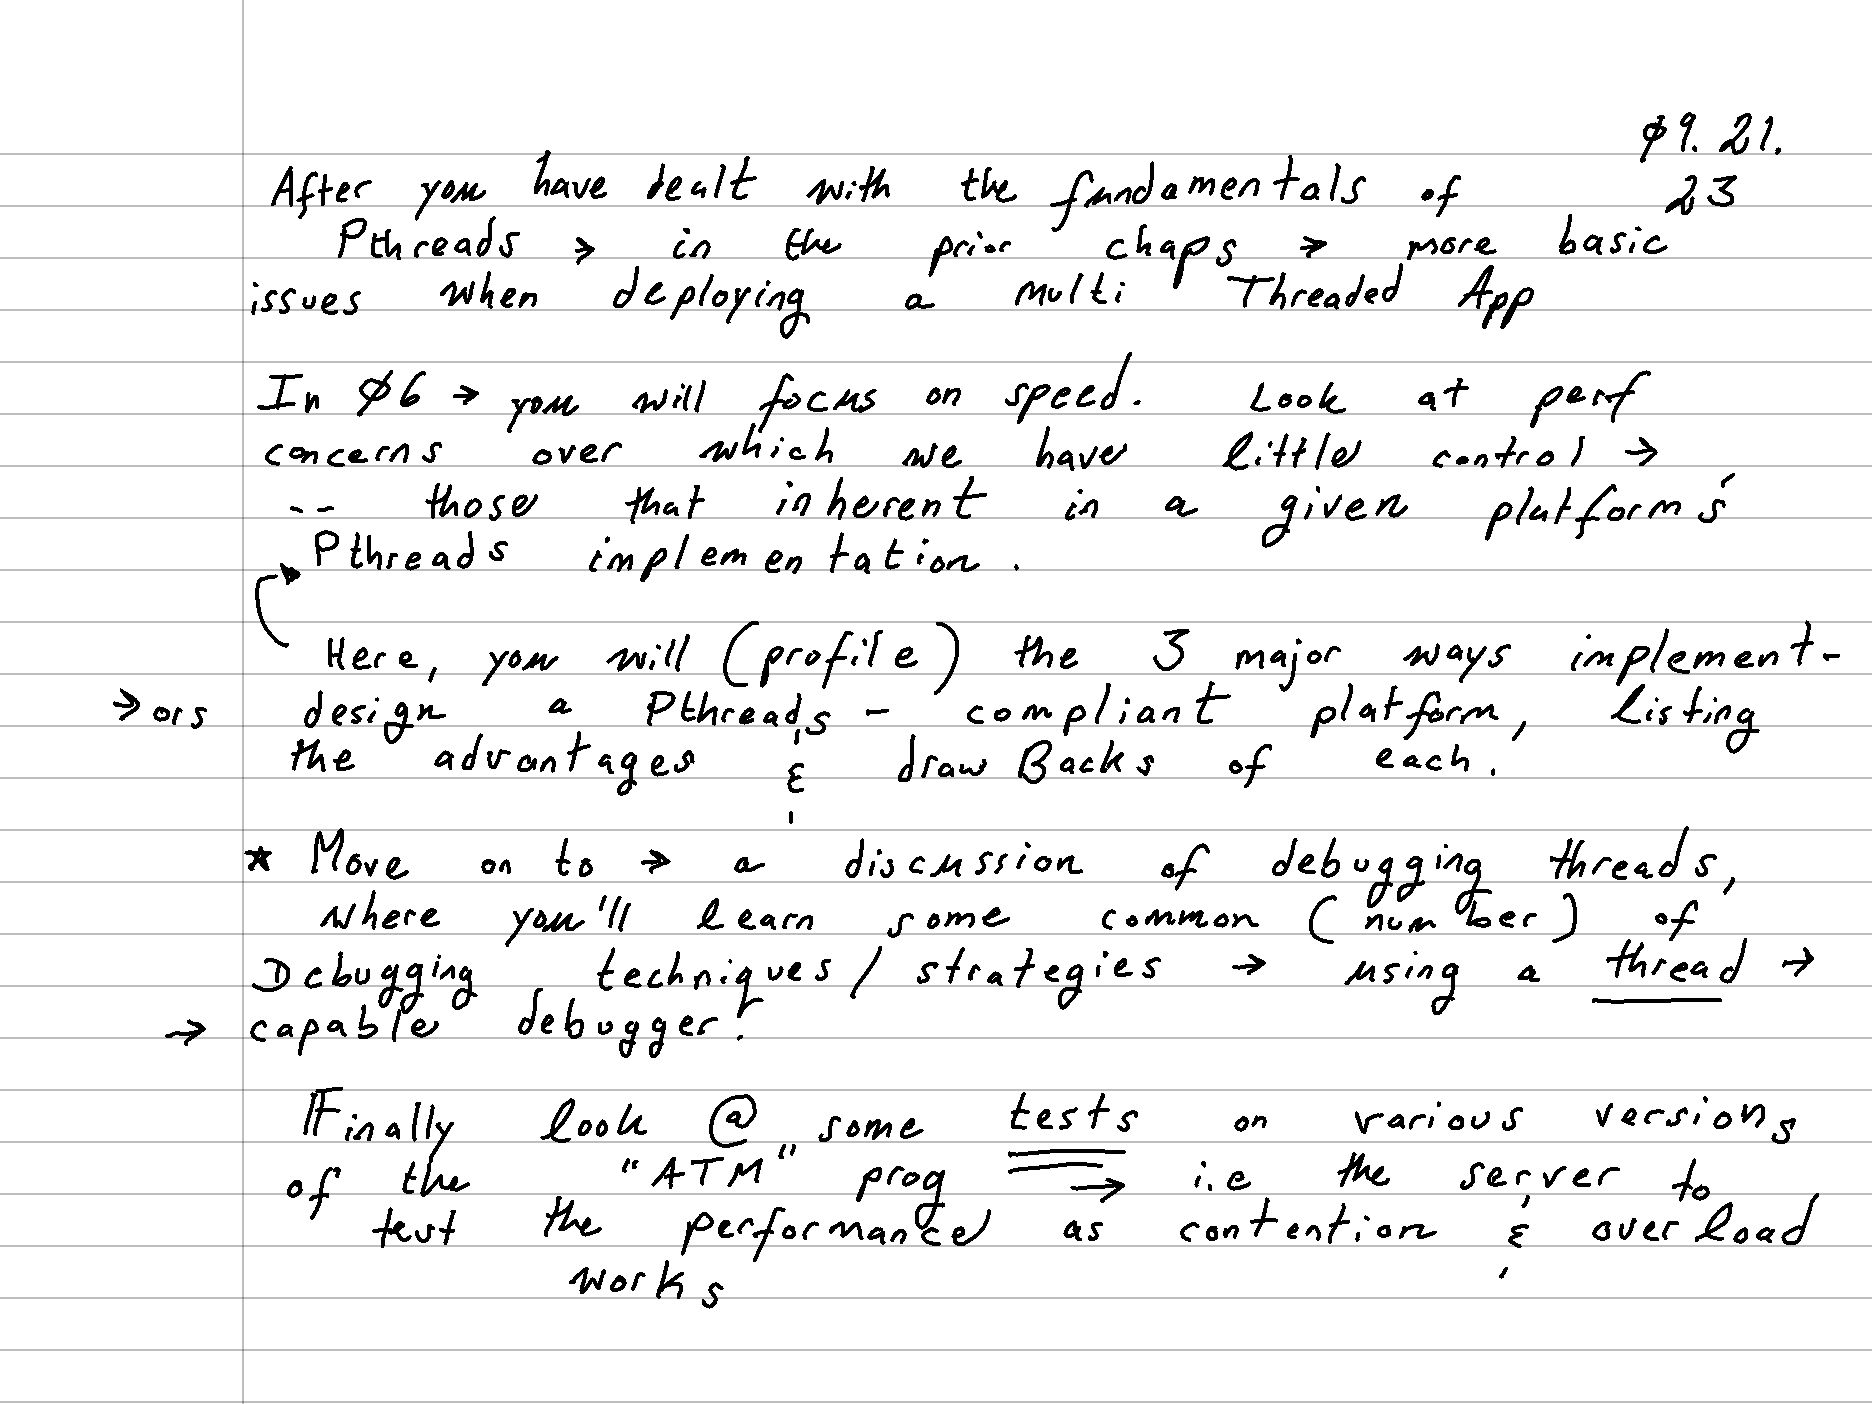 Ø9. 21.
After you have dealt with the fundamentals of 23
Pthreads → in the prior chaps → more basic
issues when deploying a multi Threaded App
In Ø6 → you will focus on speed. Look at perf
concerns over which we have little control →
-- those that inherent in a given platform's
Pthreads implementation.
Here, you will (profile) the 3 major ways implement-
→ ors design a Pthreads - compliant platform, listing
the advantages & drawBacks of each.
* Move on to → a discussion of debugging threads,
where you'll learn some common (number) of
Debugging techniques/strategies → using a thread →
→ capable debugger.
Finally look @ some tests on various versions
of the "ATM" prog → i.e the server to
test the performance as contention & overload
works